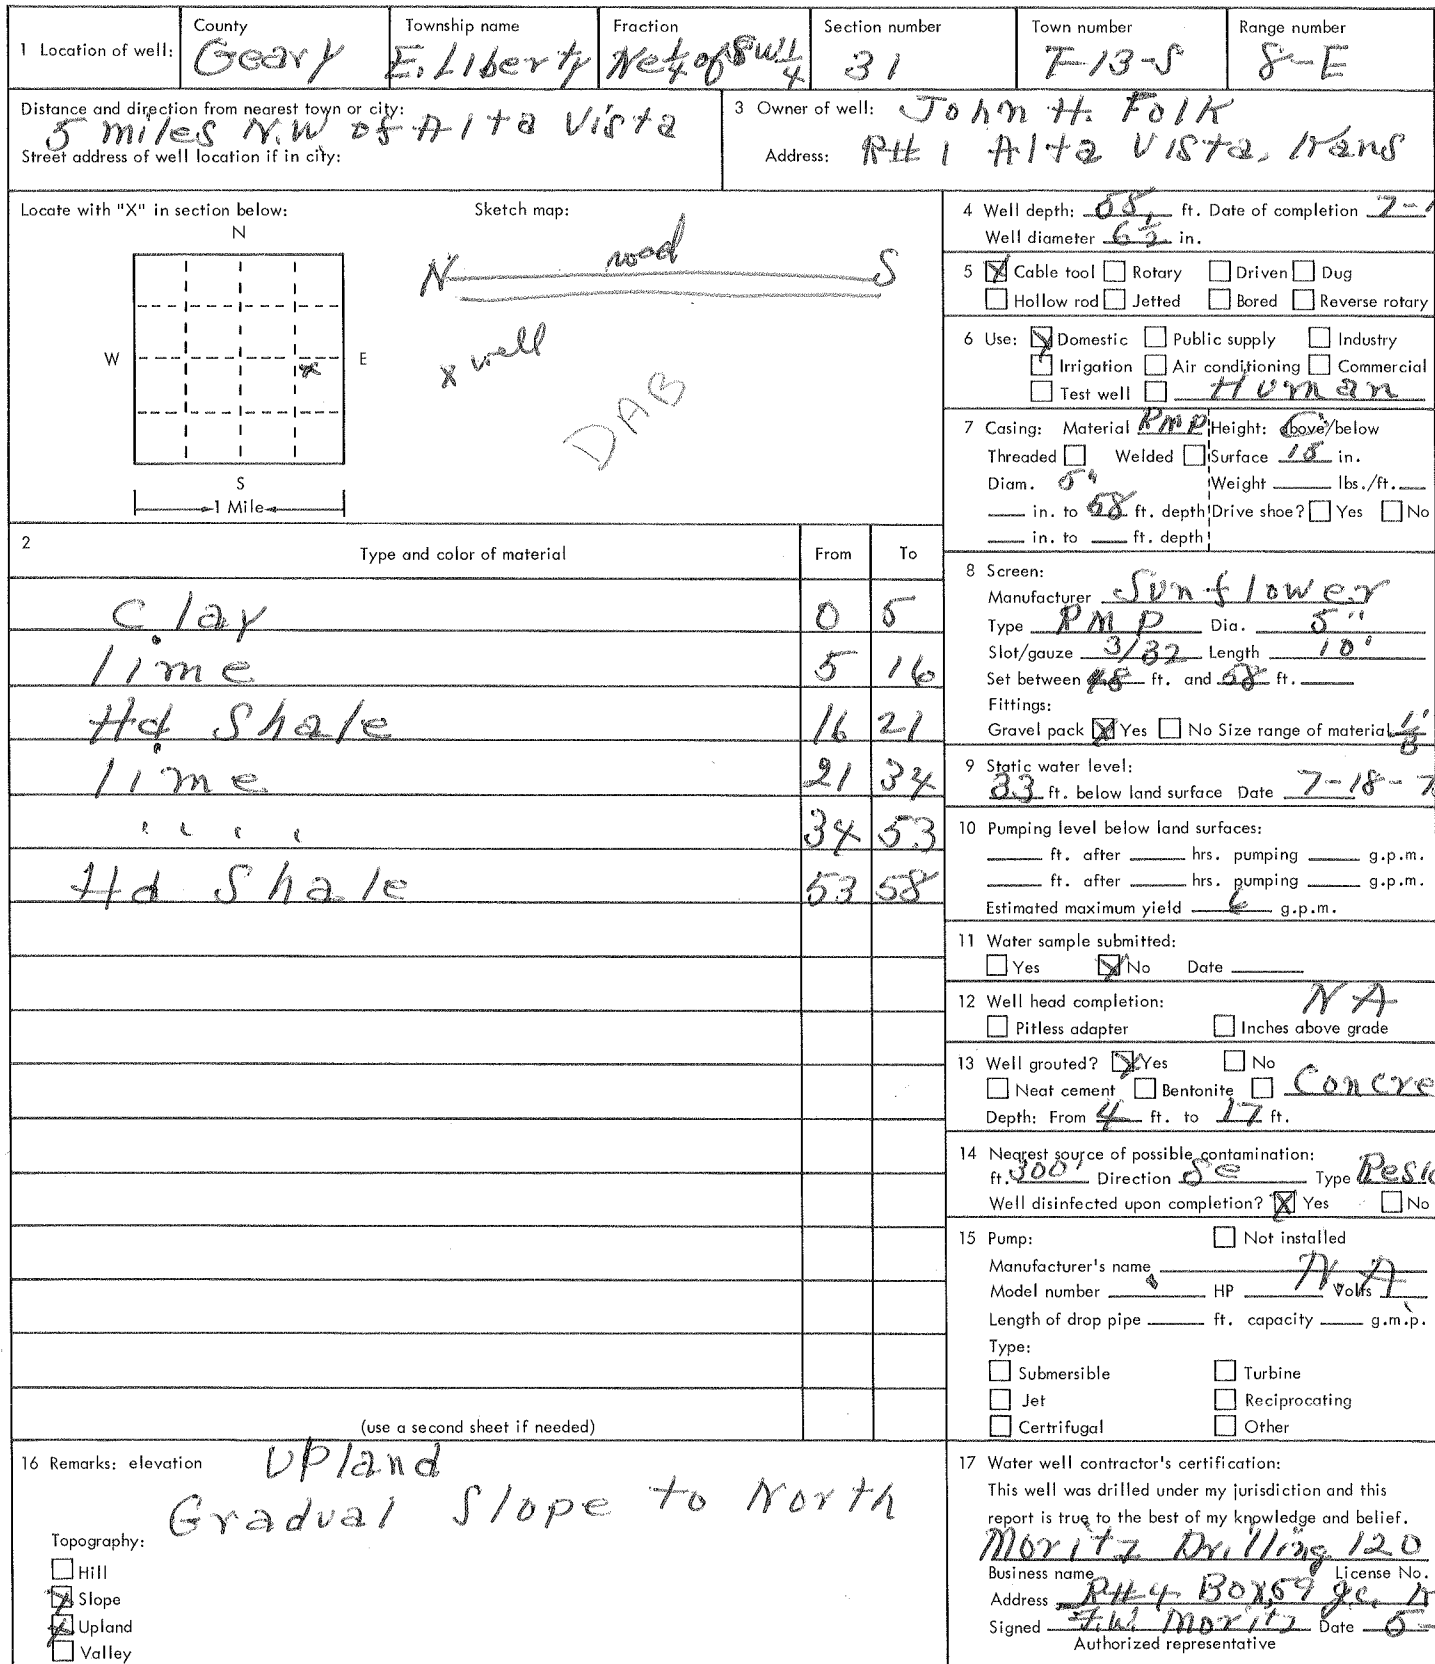 1 Location of well: County Geary Township name E. Liberty Fraction Ne 1/4 of SW 1/4 Section number 31 Town number T-13-S Range number 8-E
Distance and direction from nearest town or city: 5 miles N.W of Alta Vista
Street address of well location if in city:
3 Owner of well: John H. Folk
Address: R#1 Alta Vista, Kans
Locate with "X" in section below:
N
W E
S
1 Mile
x
Sketch map:
N road S
x well
DAB
2 Type and color of material From To
Clay 0 5
lime 5 16
Hd Shale 16 21
lime 21 34
" " 34 53
Hd Shale 53 58
(use a second sheet if needed)
4 Well depth: 58 ft. Date of completion 7-1
Well diameter 6 1/2 in.
5 ☒ Cable tool ☐ Rotary ☐ Driven ☐ Dug
☐ Hollow rod ☐ Jetted ☐ Bored ☐ Reverse rotary
6 Use: ☒ Domestic ☐ Public supply ☐ Industry
☐ Irrigation ☐ Air conditioning ☐ Commercial
☐ Test well ☐ Human
7 Casing: Material RMP Height: above/below
Threaded ☐ Welded ☐ Surface 18 in.
Diam. 5" Weight ____ lbs./ft. ____
____ in. to 58 ft. depth Drive shoe? ☐ Yes ☐ No
____ in. to ____ ft. depth
8 Screen:
Manufacturer Sunflower
Type RMP Dia. 5"
Slot/gauze 3/32 Length 10'
Set between 48 ft. and 58 ft. ____
Fittings:
Gravel pack ☒ Yes ☐ No Size range of material
9 Static water level:
33 ft. below land surface Date 7-18-7
10 Pumping level below land surfaces:
____ ft. after ____ hrs. pumping ____ g.p.m.
____ ft. after ____ hrs. pumping ____ g.p.m.
Estimated maximum yield 6 g.p.m.
11 Water sample submitted:
☐ Yes ☒ No Date ____
12 Well head completion: NA
☐ Pitless adapter ☐ Inches above grade
13 Well grouted? ☒ Yes ☐ No
☐ Neat cement ☐ Bentonite ☐ Concre
Depth: From 4 ft. to 17 ft.
14 Nearest source of possible contamination:
ft. 300' Direction Se Type Resid
Well disinfected upon completion? ☒ Yes ☐ No
15 Pump: ☐ Not installed
Manufacturer's name NA
Model number ____ HP ____ Volts ____
Length of drop pipe ____ ft. capacity ____ g.m.p.
Type:
☐ Submersible ☐ Turbine
☐ Jet ☐ Reciprocating
☐ Certrifugal ☐ Other
16 Remarks: elevation Upland
Gradual Slope to North
Topography:
☐ Hill
☒ Slope
☒ Upland
☐ Valley
17 Water well contractor's certification:
This well was drilled under my jurisdiction and this
report is true to the best of my knowledge and belief.
Moritz Drilling 120
Business name License No.
Address R#4 Box 59 J.C. K
Signed F.W. Moritz Date 5-
Authorized representative